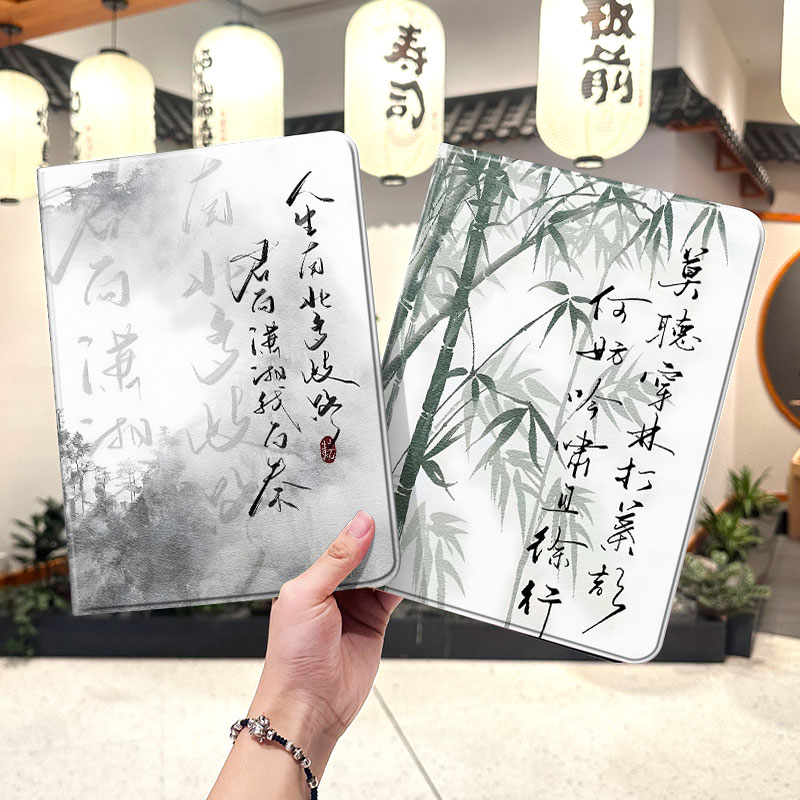 寿司
板前
人生南北多歧路
君向瀟湘我向秦
南北多歧路
君向瀟湘
莫聽穿林打葉聲
何妨吟嘯且徐行